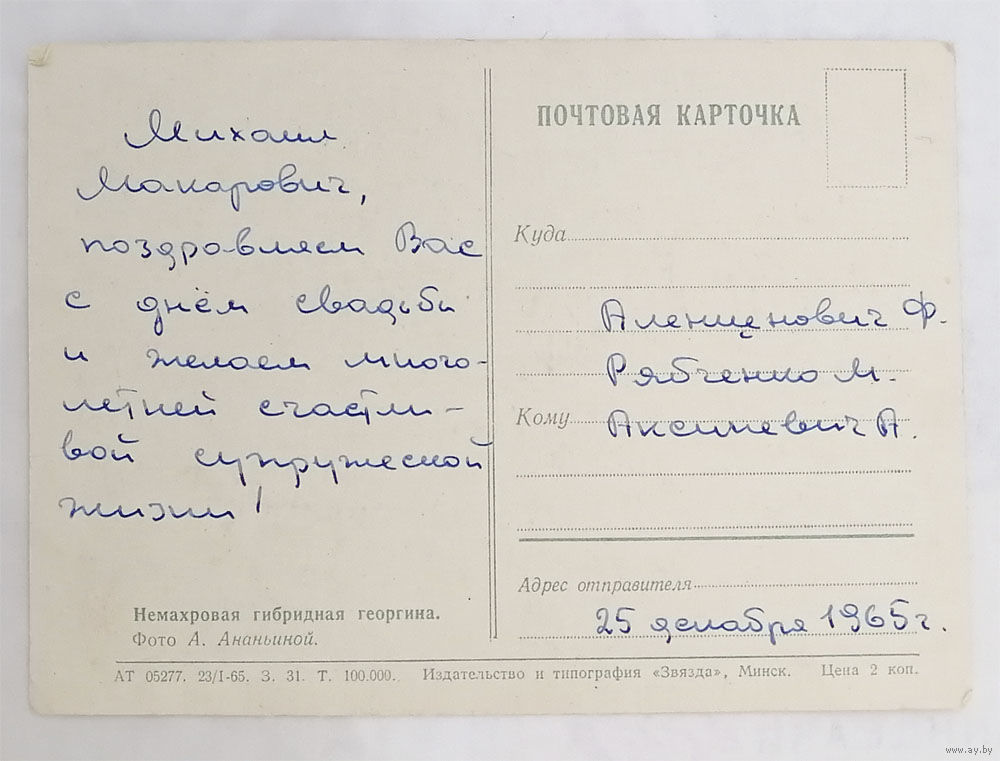 Михаил
Макарович,
поздравляем Вас
с днём свадьби
и желаем много-
летней счастли-
вой супружеской
жизни!
Немахровая гибридная георгина.
Фото А. Ананьиной.
ПОЧТОВАЯ КАРТОЧКА
Куда
Аленценович Ф.
Рябченко М.
Кому
Аксиневич А.
Адрес отправителя
25 декабря 1965 г.
АТ 05277. 23/I-65. З. 31. Т. 100.000. Издательство и типография «Звязда», Минск. Цена 2 коп.
www.ay.by